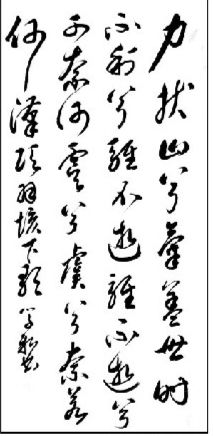 力拔山兮氣蓋世時
不利兮騅不逝騅不逝兮
可奈何虞兮虞兮奈若
何漢項羽垓下歌書